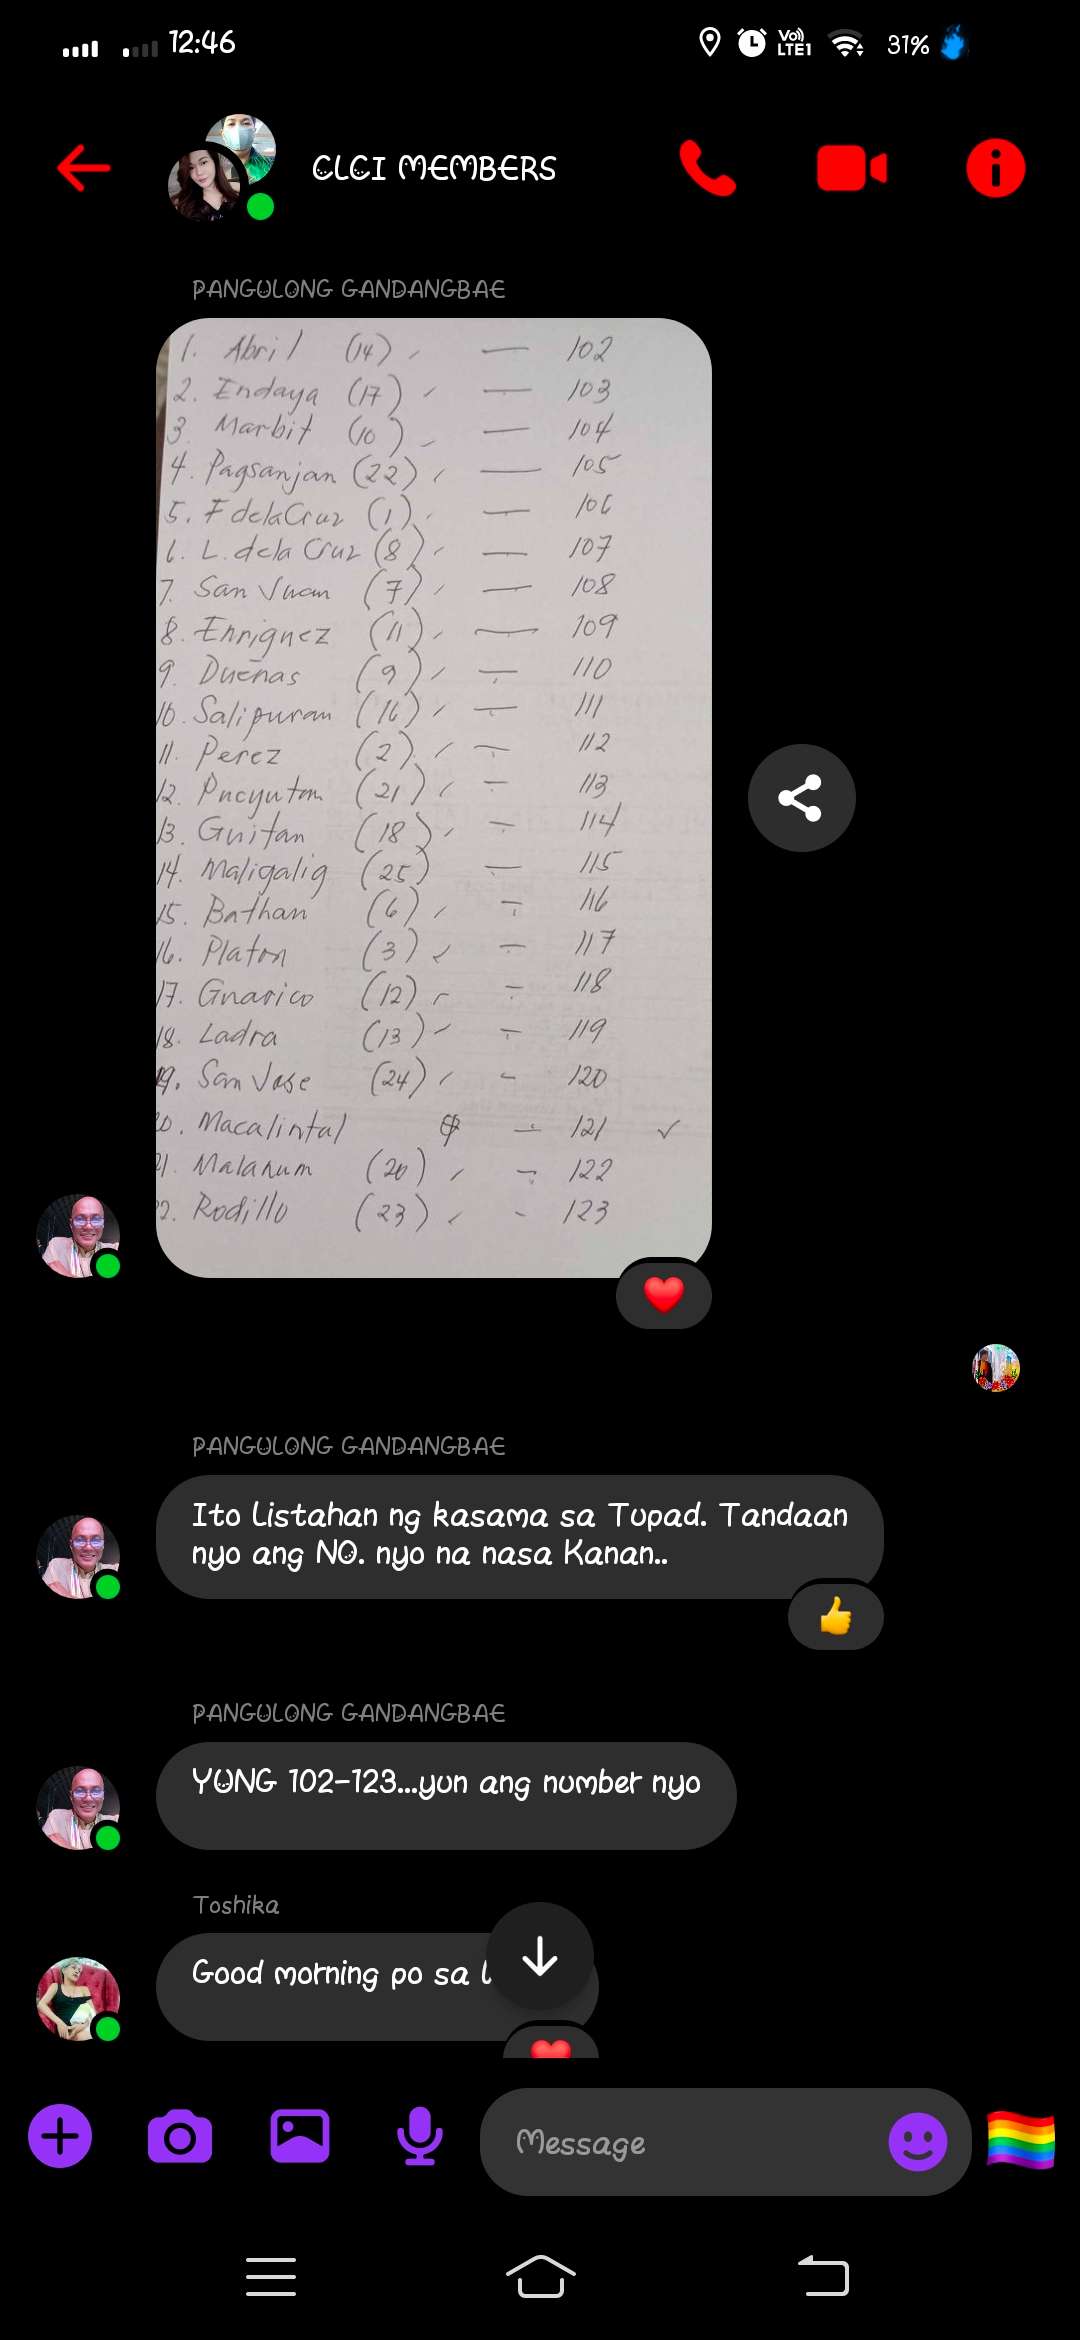 12:46
Vo))
LTE1
31%
CLCI MEMBERS
PANGULONG GANDANGBAE
1. Abril (14) — 102
2. Endaya (17) — 103
3. Marbit (10) — 104
4. Pagsanjan (22) — 105
5. F delaCruz (1) — 106
6. L. dela Cruz (8) — 107
7. San Juan (7) — 108
8. Enriquez (11) — 109
9. Dueñas (9) — 110
10. Salipuran (16) — 111
11. Perez (2) — 112
12. (21) — 113
13. Guitan (18) — 114
14. Maligalig (25) — 115
15. Bathan (6) — 116
16. Platon (3) — 117
17. Guarico (12) — 118
18. Ladra (13) — 119
19. San Jose (24) - 120
20. Macalintal — 121 ✓
21. Malanum (20) - 122
22. Rodillo (23) - 123
PANGULONG GANDANGBAE
Ito Listahan ng kasama sa Tupad. Tandaan
nyo ang NO. nyo na nasa Kanan..
PANGULONG GANDANGBAE
YUNG 102-123...yun ang number nyo
Toshika
Good morning po sa l
Message